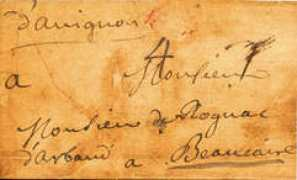 d'avignon
4
a Monsieur
Monsieur de Rognac
d'arbaud a Beaucaire